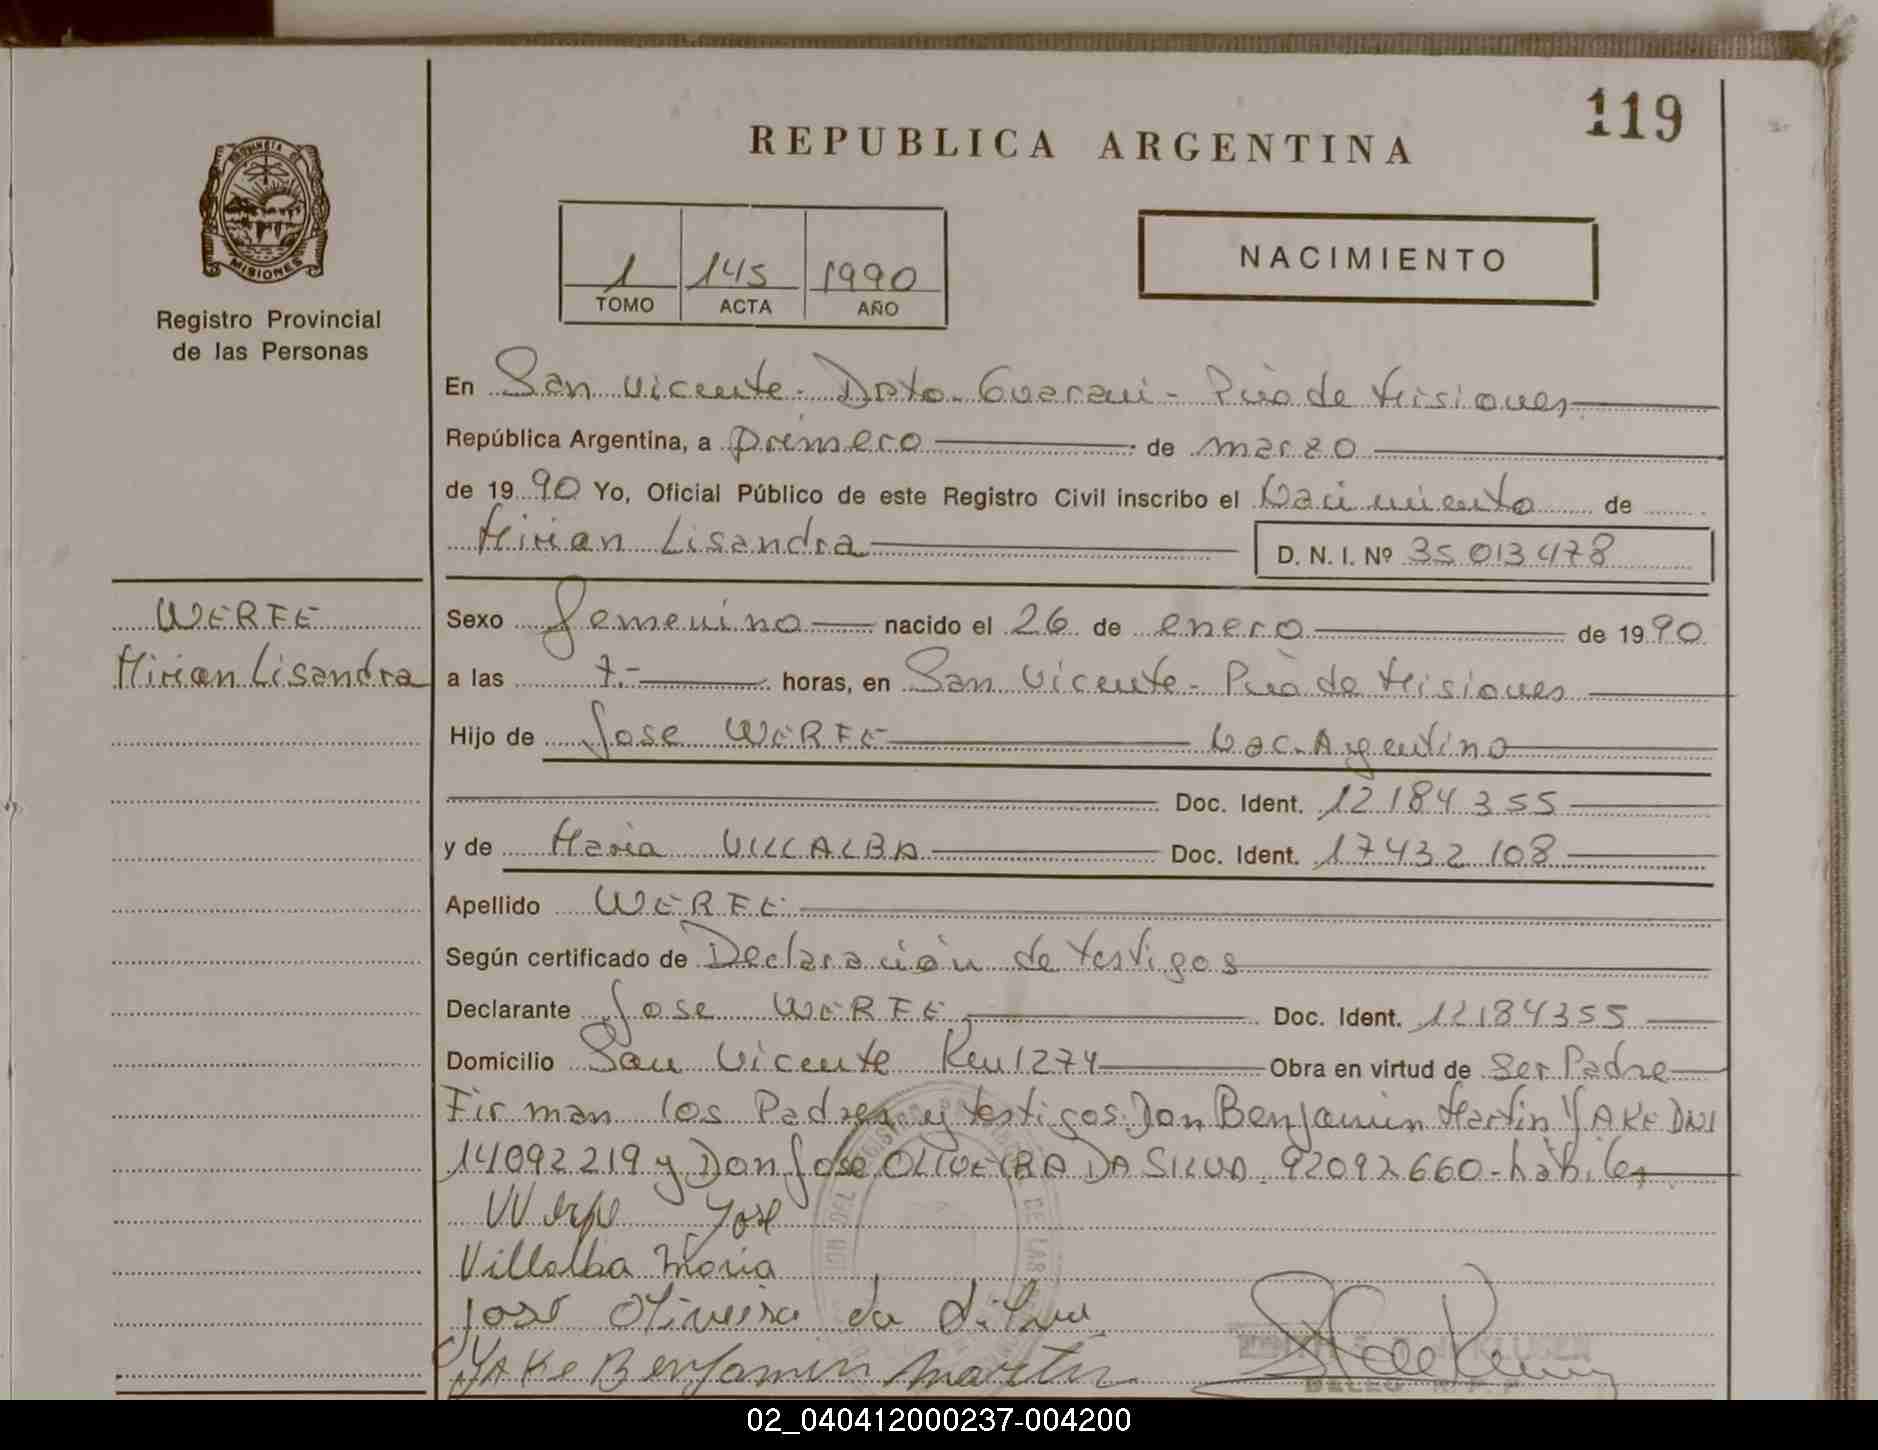 119
REPUBLICA ARGENTINA
PROVINCIA DE
MISIONES
Registro Provincial
de las Personas
1 145 1990
TOMO ACTA AÑO
NACIMIENTO
En San Vicente - Dpto. Guarani - Pcia de Misiones
República Argentina, a primero de marzo
de 1990 Yo, Oficial Público de este Registro Civil inscribo el Nacimiento de
Mirian Lisandra D. N. I. Nº 35 013 478
WERFE
Mirian Lisandra
Sexo Femenino nacido el 26 de enero de 1990
a las 7.- horas, en San Vicente - Pcia de Misiones
Hijo de Jose WERFE Nac. Argentino
Doc. Ident. 12 184 355
y de Maria VILLALBA Doc. Ident. 17432 108
Apellido WERFE
Según certificado de Declaración de testigos
Declarante Jose WERFE Doc. Ident. 12184355
Domicilio San Vicente Km 1274 Obra en virtud de Ser Padre
Firman los Padres y testigos: Don Benjamin Martin YAKE DNI
14092219 y Don Jose OLIVEIRA DA SILVA. 92092660 - hábiles
Werfe Jose
Villalba Maria
José Oliveira da Silva
YAKE BenJamin Martin
02_040412000237-004200